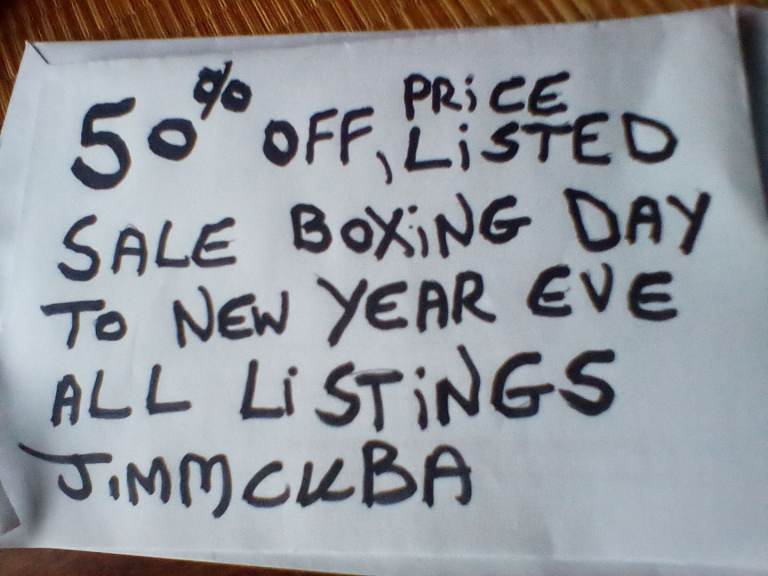 50% OFF, PRiCE LiSTED
SALE BOXiNG DAY
TO NEW YEAR EVE
ALL LiSTiNGS
JiMMCKBA